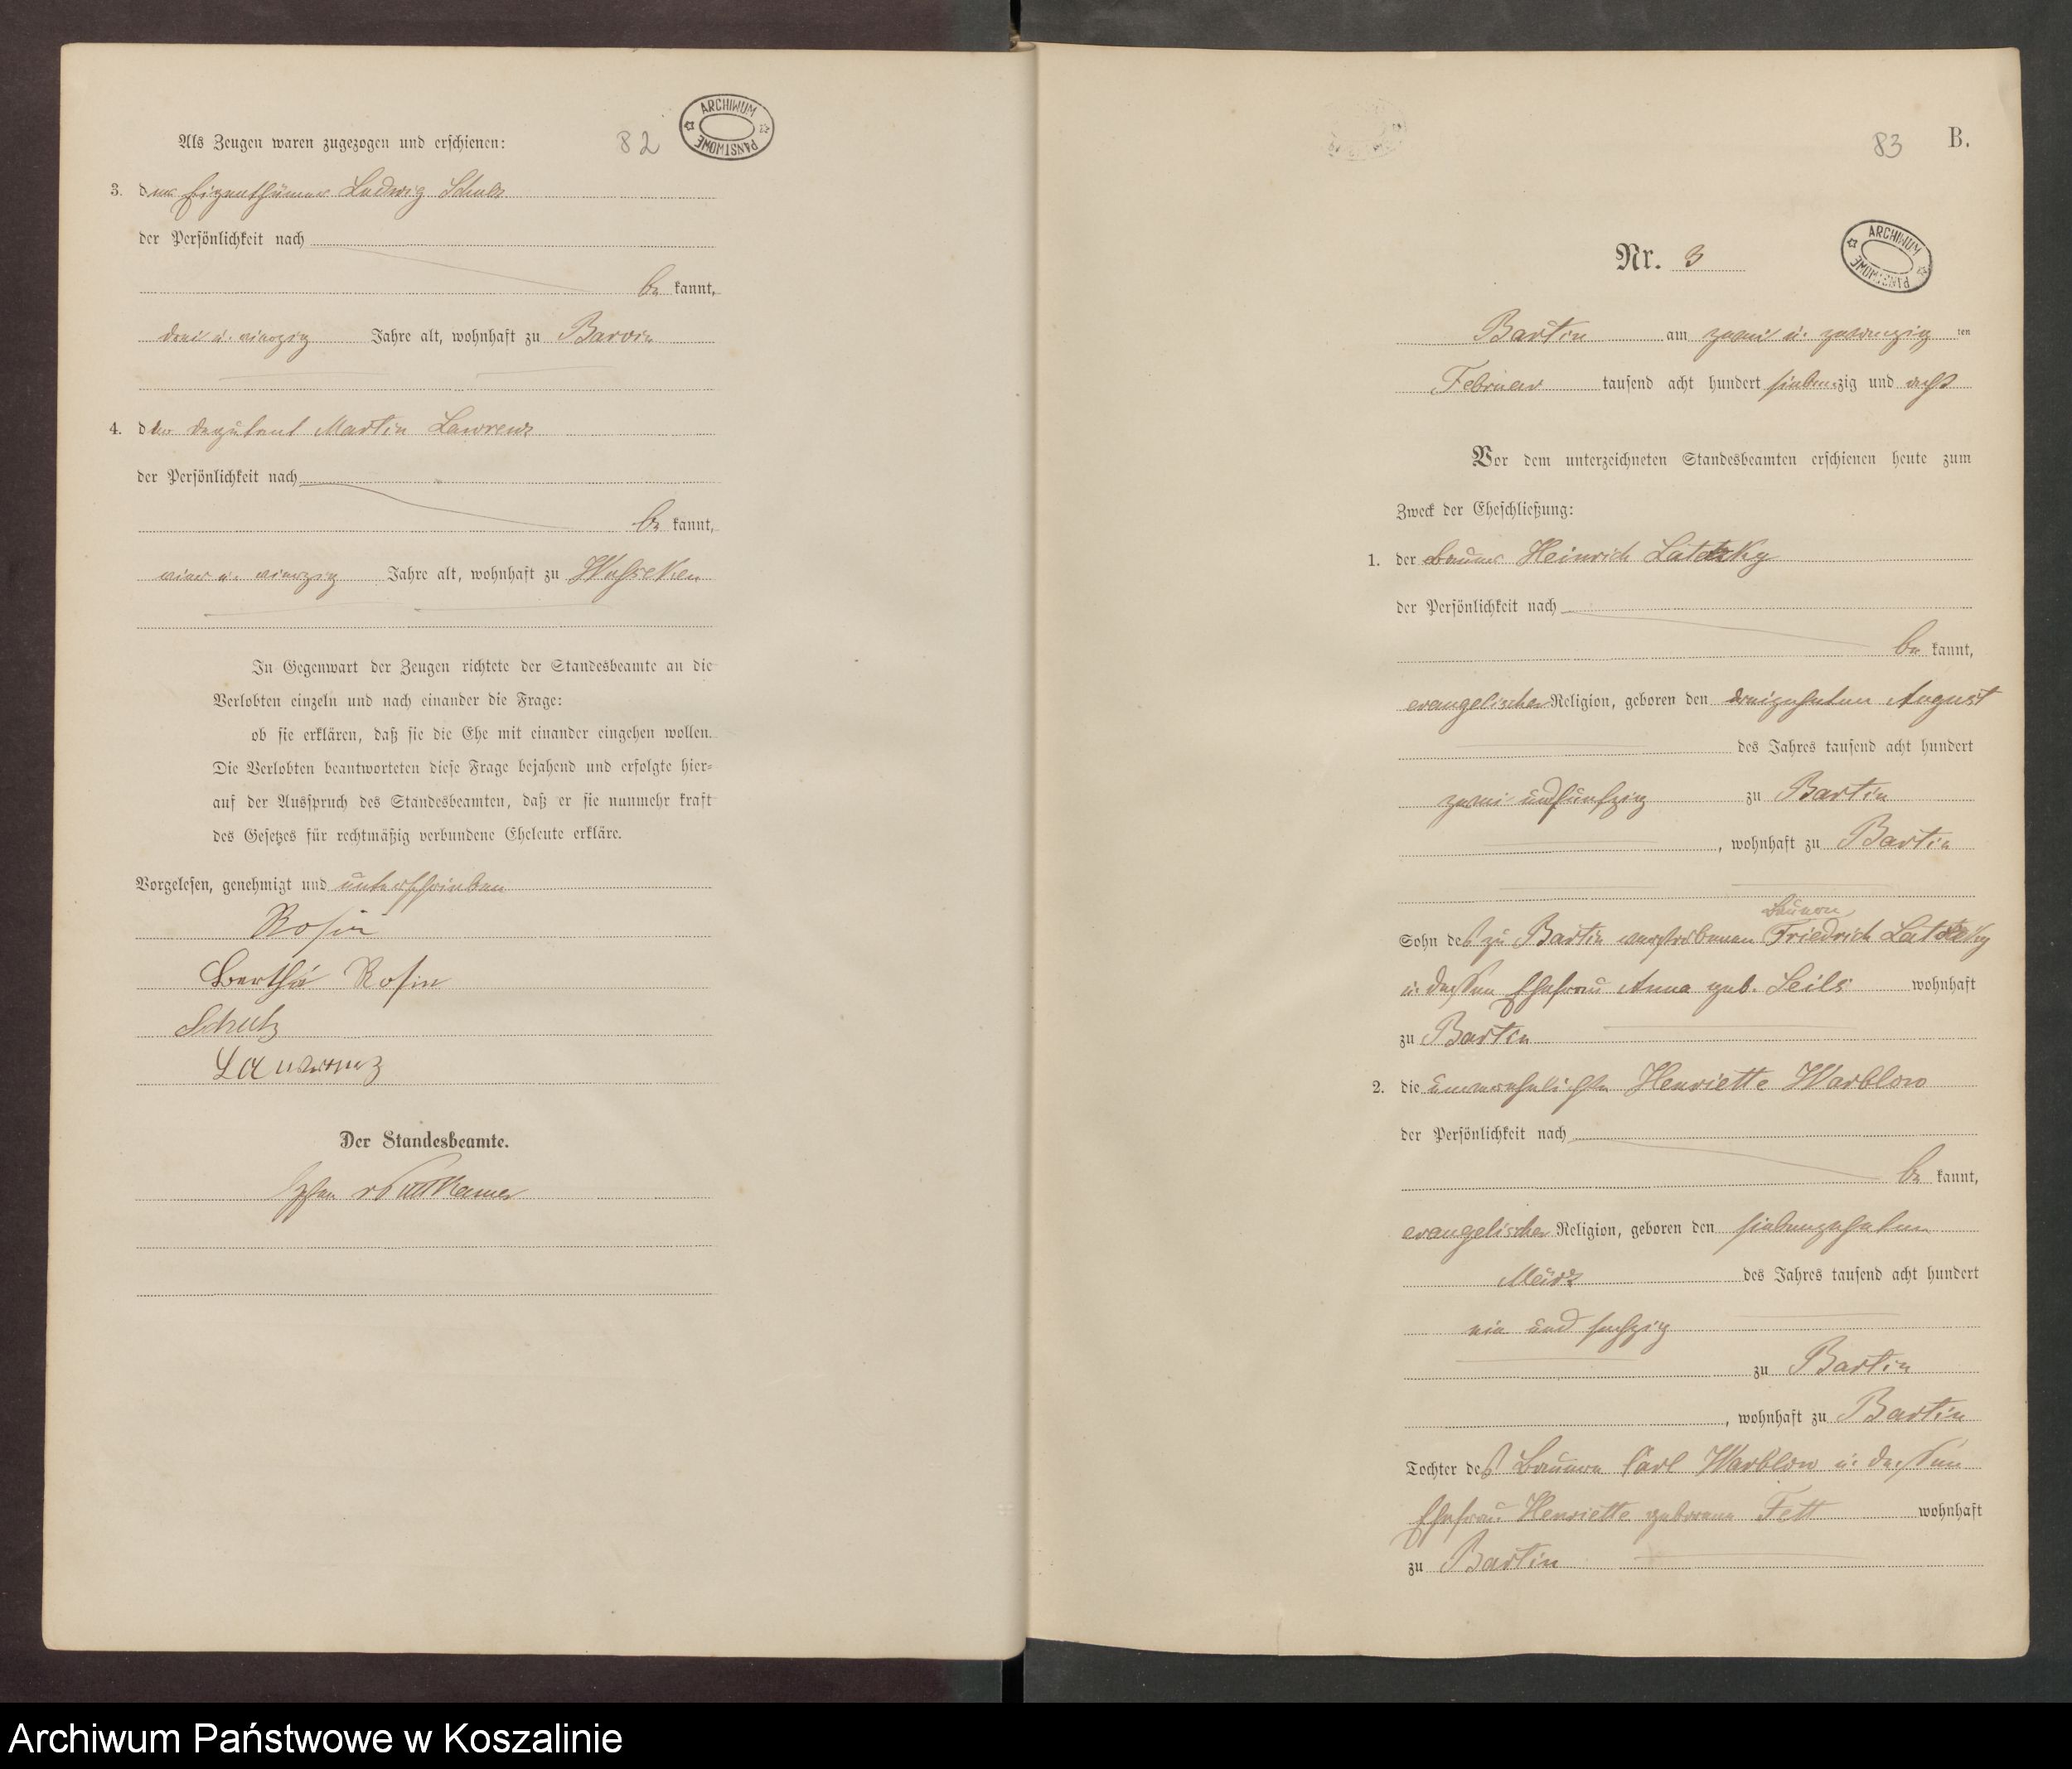 82
ARCHIWUM PAŃSTWOWE
Als Zeugen waren zugezogen und erschienen:
3. der Eigenthümer Ludwig Schulz
der Persönlichkeit nach
be kannt,
drei u. vierzig Jahre alt, wohnhaft zu Barvin
4. der Deputant Martin Lawrenz
der Persönlichkeit nach
be kannt,
einer u. vierzig Jahre alt, wohnhaft zu Wusseken
In Gegenwart der Zeugen richtete der Standesbeamte an die
Verlobten einzeln und nach einander die Frage:
ob sie erklären, daß sie die Ehe mit einander eingehen wollen.
Die Verlobten beantworteten diese Frage bejahend und erfolgte hier-
auf der Ausspruch des Standesbeamten, daß er sie nunmehr kraft
des Gesetzes für rechtmäßig verbundene Eheleute erkläre.
Vorgelesen, genehmigt und unterschrieben
Rosin
Bertha Rosin
Schulz
Lauwrenz
Der Standesbeamte.
Puttkamer
83
B.
ARCHIWUM PAŃSTWOWE
Nr. 3
Bartin am zwei u. zwanzig ten
Februar tausend acht hundert siebenzig und acht
Vor dem unterzeichneten Standesbeamten erschienen heute zum
Zweck der Eheschließung:
1. der Bauer Heinrich Latzky
der Persönlichkeit nach
be kannt,
evangelischer Religion, geboren den dreizehnten August
des Jahres tausend acht hundert
zwei und fünfzig zu Bartin
, wohnhaft zu Bartin
Bauern
Sohn des zu Bartin verstorbenen Friedrich Latzky
u. dessen Ehefrau Anna geb. Leils wohnhaft
zu Bartin
2. die unverehelichte Henriette Warblow
der Persönlichkeit nach
be kannt,
evangelischer Religion, geboren den siebenzehnten
März des Jahres tausend acht hundert
ein und sechzig
zu Bartin
, wohnhaft zu Bartin
Tochter des Bauern Carl Warblow u. dessen
Ehefrau Henriette geborene Fett wohnhaft
zu Bartin
Archiwum Państwowe w Koszalinie